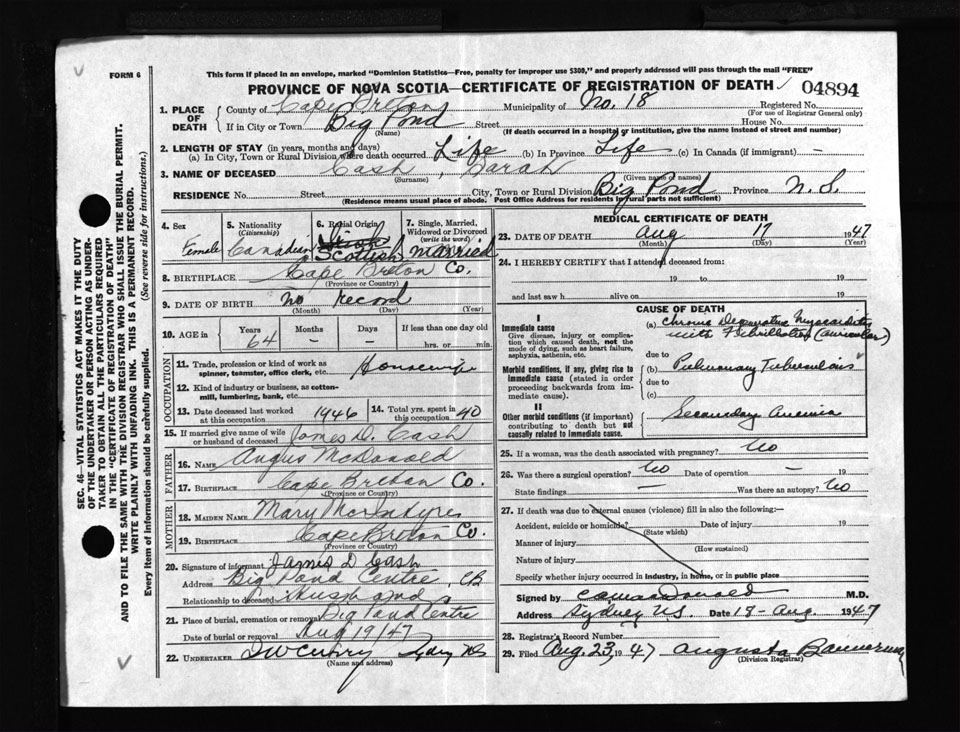 FORM 6
This form if placed in an envelope, marked "Dominion Statistics—Free, penalty for improper use $300," and properly addressed will pass through the mail "FREE"
PROVINCE OF NOVA SCOTIA—CERTIFICATE OF REGISTRATION OF DEATH 04894
1. PLACE OF DEATH
County of Cape Breton Municipality of No. 18 Registered No.
(For use of Registrar General only)
If in City or Town Big Pond Street House No.
(Name) (If death occurred in a hospital or institution, give the name instead of street and number)
2. LENGTH OF STAY (in years, months and days)
(a) In City, Town or Rural Division where death occurred Life (b) In Province Life (c) In Canada (if immigrant) —
3. NAME OF DECEASED Cash, Sarah
(Surname) (Given name or names)
RESIDENCE No. Street City, Town or Rural Division Big Pond Province N.S.
(Residence means usual place of abode. Post Office Address for residents in rural parts not sufficient)
SEC. 46—VITAL STATISTICS ACT MAKES IT THE DUTY
OF THE UNDERTAKER OR PERSON ACTING AS UNDER-
TAKER TO OBTAIN ALL THE PARTICULARS REQUIRED
IN THE "CERTIFICATE OF REGISTRATION OF DEATH"
AND TO FILE THE SAME WITH THE DIVISION REGISTRAR WHO SHALL ISSUE THE BURIAL PERMIT.
WRITE PLAINLY WITH UNFADING INK. THIS IS A PERMANENT RECORD.
Every item of Information should be carefully supplied. (See reverse side for instructions.)
4. Sex
Female
5. Nationality
(Citizenship)
Canadian
6. Racial Origin
Scottish
7. Single, Married, Widowed or Divorced
(write the word)
Married
8. BIRTHPLACE Cape Breton Co.
(Province or Country)
9. DATE OF BIRTH No Record
(Month) (Day) (Year)
10. AGE in Years 64 Months – Days – If less than one day old
hrs. or min.
OCCUPATION
11. Trade, profession or kind of work as spinner, teamster, office clerk, etc. Housewife
12. Kind of industry or business, as cotton-mill, lumbering, bank, etc.
13. Date deceased last worked at this occupation 1946
14. Total yrs. spent in this occupation 40
15. If married give name of wife or husband of deceased James D. Cash
FATHER
16. NAME Angus McDonald
17. BIRTHPLACE Cape Breton Co.
(Province or Country)
MOTHER
18. MAIDEN NAME Mary McIntyre
19. BIRTHPLACE Cape Breton Co.
(Province or Country)
20. Signature of informant James D Cash
Address Big Pond Centre, CB
Relationship to deceased Husband
21. Place of burial, cremation or removal Big Pond Centre
Date of burial or removal Aug 19/47
22. UNDERTAKER
(Name and address)
MEDICAL CERTIFICATE OF DEATH
23. DATE OF DEATH Aug 17 1947
(Month) (Day) (Year)
24. I HEREBY CERTIFY that I attended deceased from:
19 to 19
and last saw h alive on 19
CAUSE OF DEATH
I
Immediate cause
Give disease, injury or complication which caused death, not the mode of dying, such as heart failure, asphyxia, asthenia, etc.
(a) Chronic Degenerative Myocarditis
with Fibrillation (auricular)
due to
Morbid conditions, if any, giving rise to immediate cause (stated in order proceeding backwards from immediate cause).
(b) Pulmonary Tuberculosis
due to
(c)
II
Other morbid conditions (if important) contributing to death but not causally related to immediate cause.
Secondary Anemia
25. If a woman, was the death associated with pregnancy? No
26. Was there a surgical operation? No Date of operation – 19
State findings – Was there an autopsy? No
27. If death was due to external causes (violence) fill in also the following:—
Accident, suicide or homicide? Date of injury 19
(State which)
Manner of injury
(How sustained)
Nature of injury
Specify whether injury occurred in industry, in home, or in public place
Signed by M.D.
Address Sydney N.S. Date 18-Aug. 1947
28. Registrar's Record Number
29. Filed Aug. 23, 1947 Augusta
(Division Registrar)